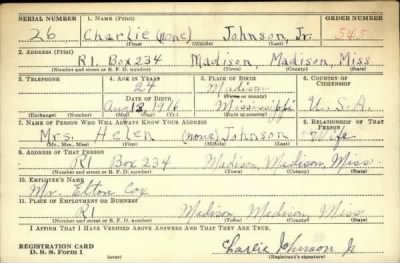 SERIAL NUMBER 1. NAME (Print) ORDER NUMBER
26 Charlie (none) Johnson, Jr. 545
(First) (Middle) (Last)
2. ADDRESS (Print)
R1. Box 234 Madison, Madison, Miss
(Number and street or R. F. D. number) (Town) (County) (State)
3. TELEPHONE 4. AGE IN YEARS 5. PLACE OF BIRTH 6. COUNTRY OF CITIZENSHIP
24 Madison
DATE OF BIRTH (Town or county)
Aug 13, 1916 Mississippi U.S.A.
(Exchange) (Number) (Mo.) (Day) (Yr.) (State or country)
7. NAME OF PERSON WHO WILL ALWAYS KNOW YOUR ADDRESS 8. RELATIONSHIP OF THAT PERSON
Mrs. Helen (none) Johnson Wife
(Mr., Mrs., Miss) (First) (Middle) (Last)
9. ADDRESS OF THAT PERSON
R1 Box 234 Madison, Madison, Miss.
(Number and street or R. F. D. number) (Town) (County) (State)
10. EMPLOYER'S NAME
Mr. Elton Cox
11. PLACE OF EMPLOYMENT OR BUSINESS
R1 Madison, Madison, Miss
(Number and street or R. F. D. number) (Town) (County) (State)
I AFFIRM THAT I HAVE VERIFIED ABOVE ANSWERS AND THAT THEY ARE TRUE.
REGISTRATION CARD Charlie Johnson Jr
D. S. S. Form 1 (over) (Registrant's signature)